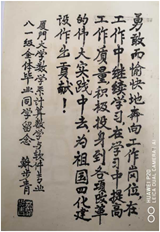 勇敢而愉快地奔向工作岗位在
工作中继续学习在学习中提高
工作质量积极投身到各项改革
的伟大实践中去为祖国四化建
设作出贡献！
厦门大学数学系计算数学与软件专业
八一级全体毕业同学留念
HUAWEI